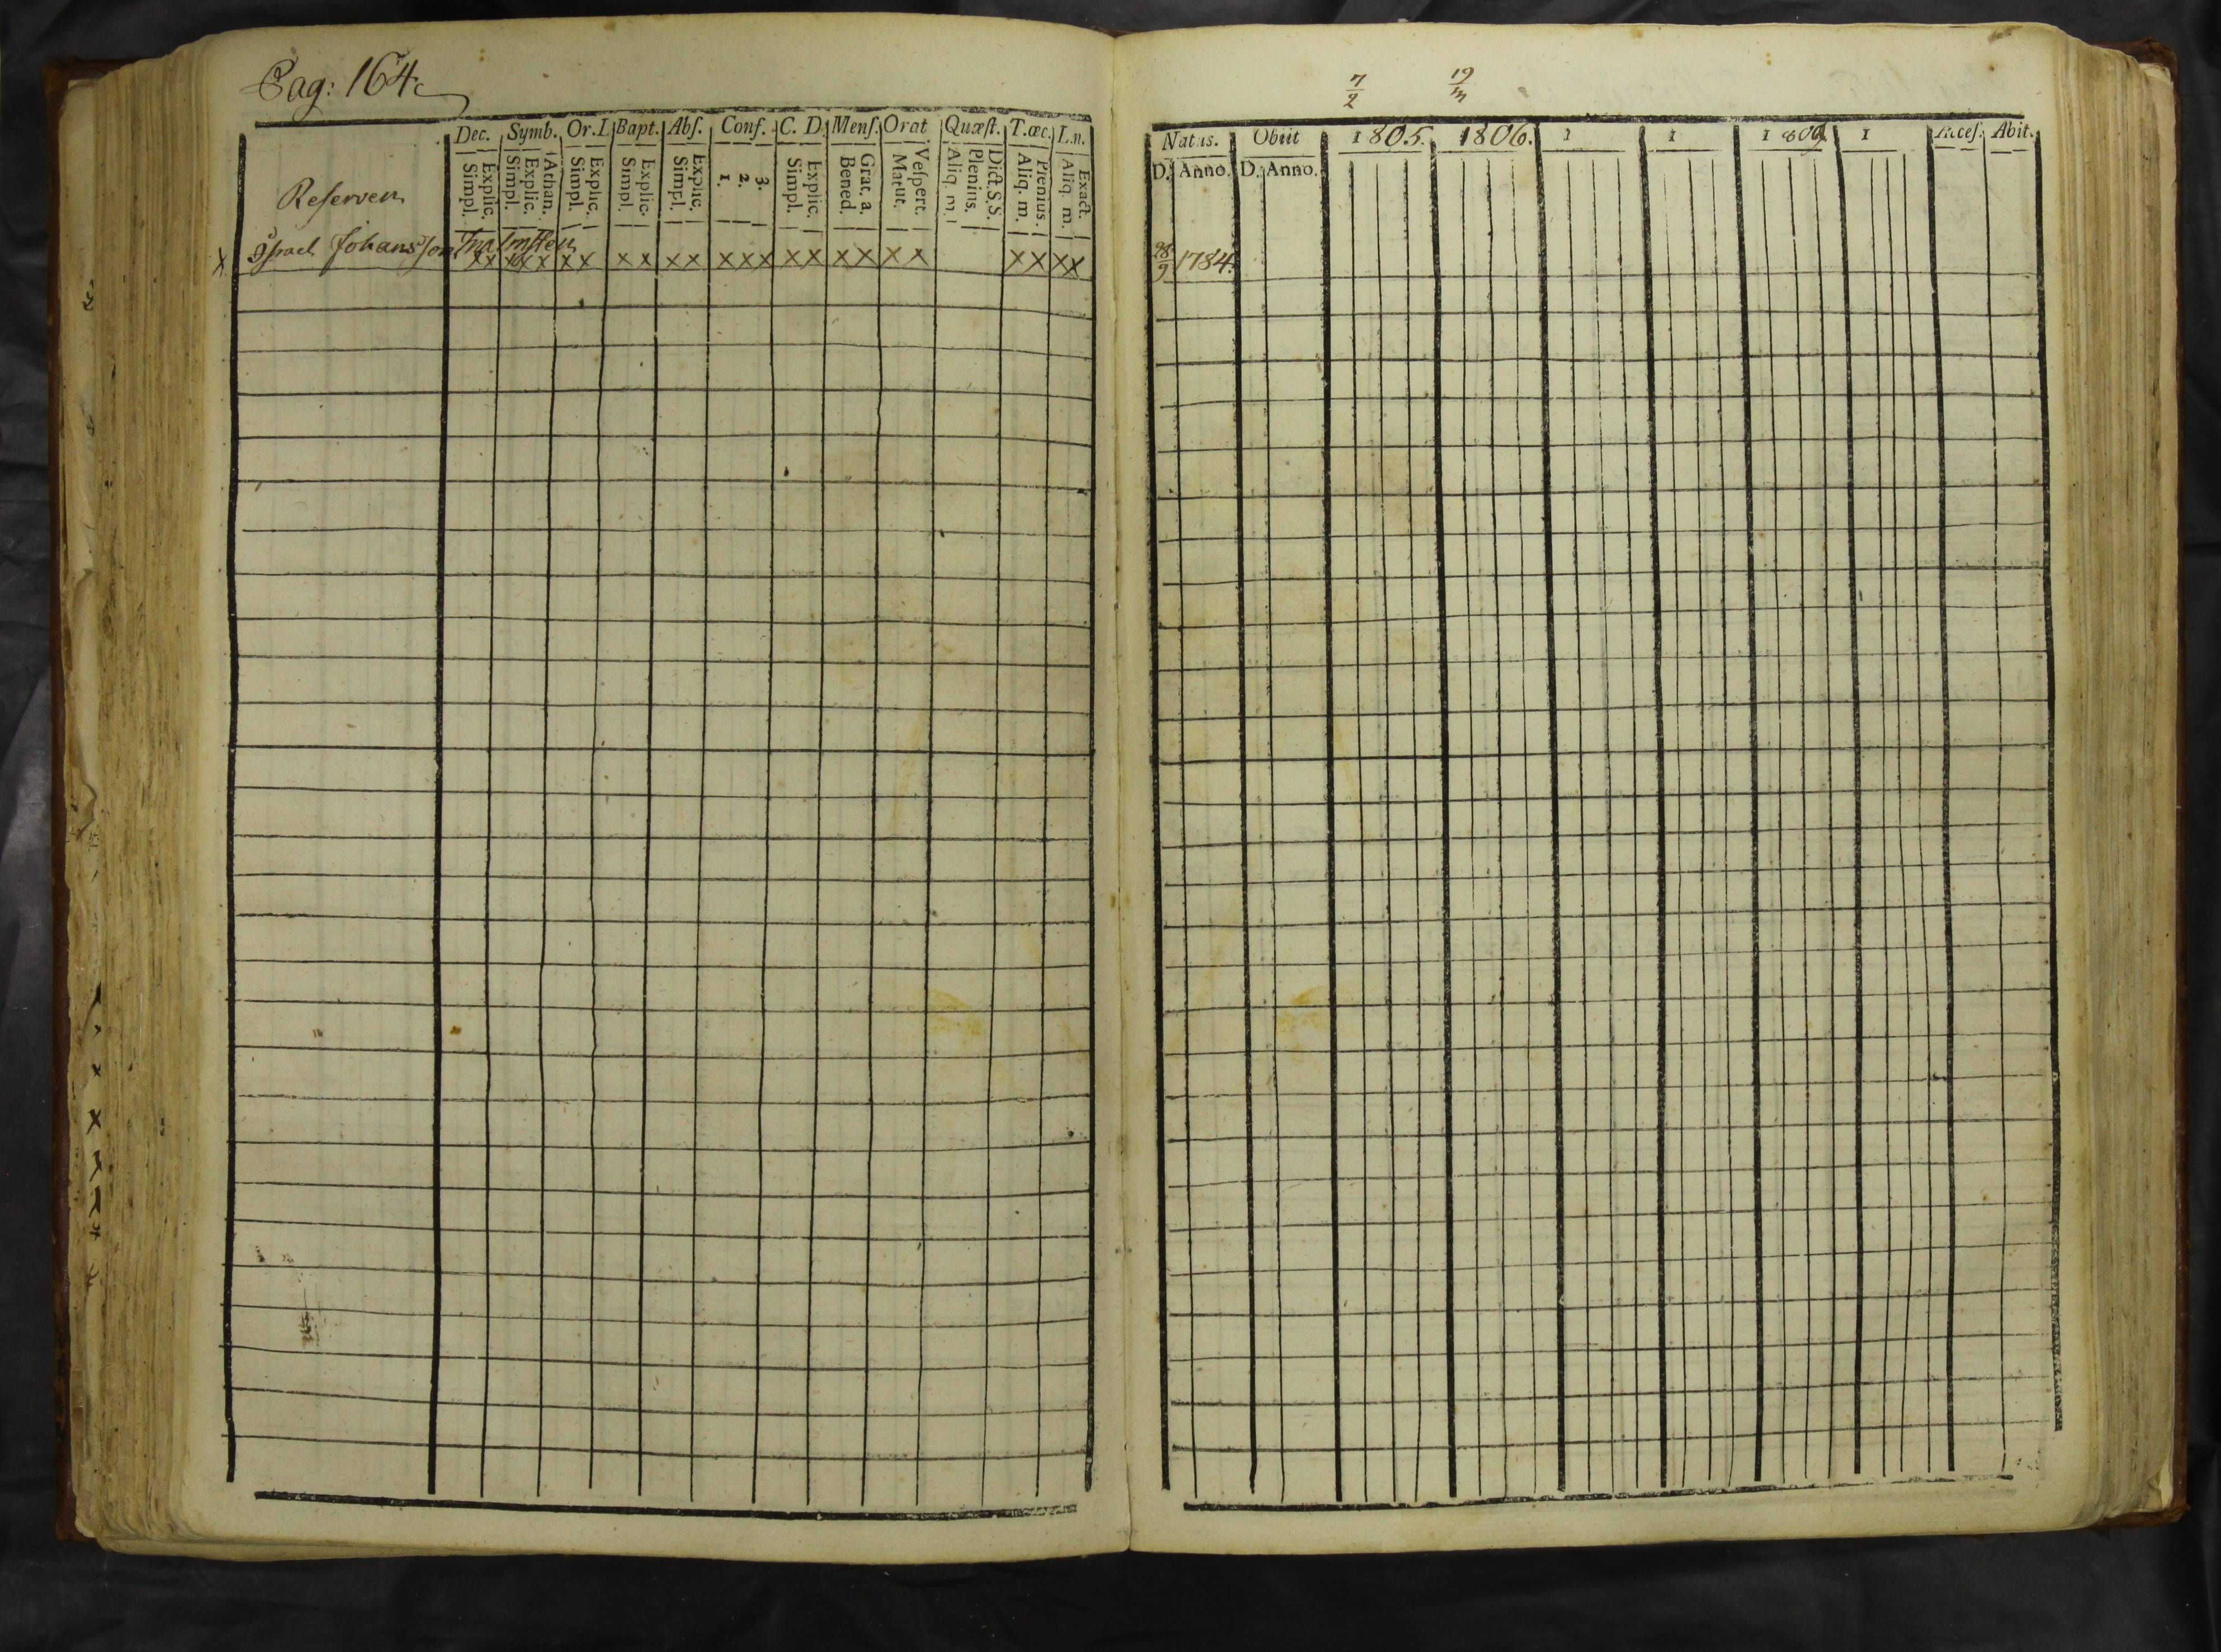 Pag: 164
Dec. Symb. Or. D. Bapt. Abſ. Conf. C. D. Menſ. Orat Quæſt. T. œc. L. n.
Explic. Simpl. Athan. Explic. Simpl. Explic. Simpl. Explic. Simpl. Explic. Simpl. 3. 2. 1. Explic. Simpl. Grat. a. Bened. Veſpert. Matut. Dict. S. S. Plenius. Aliq. m. Plenius. Aliq. m. Exact. Aliq. m.
Reserven
Israel Johansson
x x x x x x x x x x x x x x x x x x x x x x x x
7/2 19/m
Natus. Obiit 1805. 1806. 1 1 1809 1 Acceſ. Abit.
D. Anno. D. Anno.
28/9 1784.